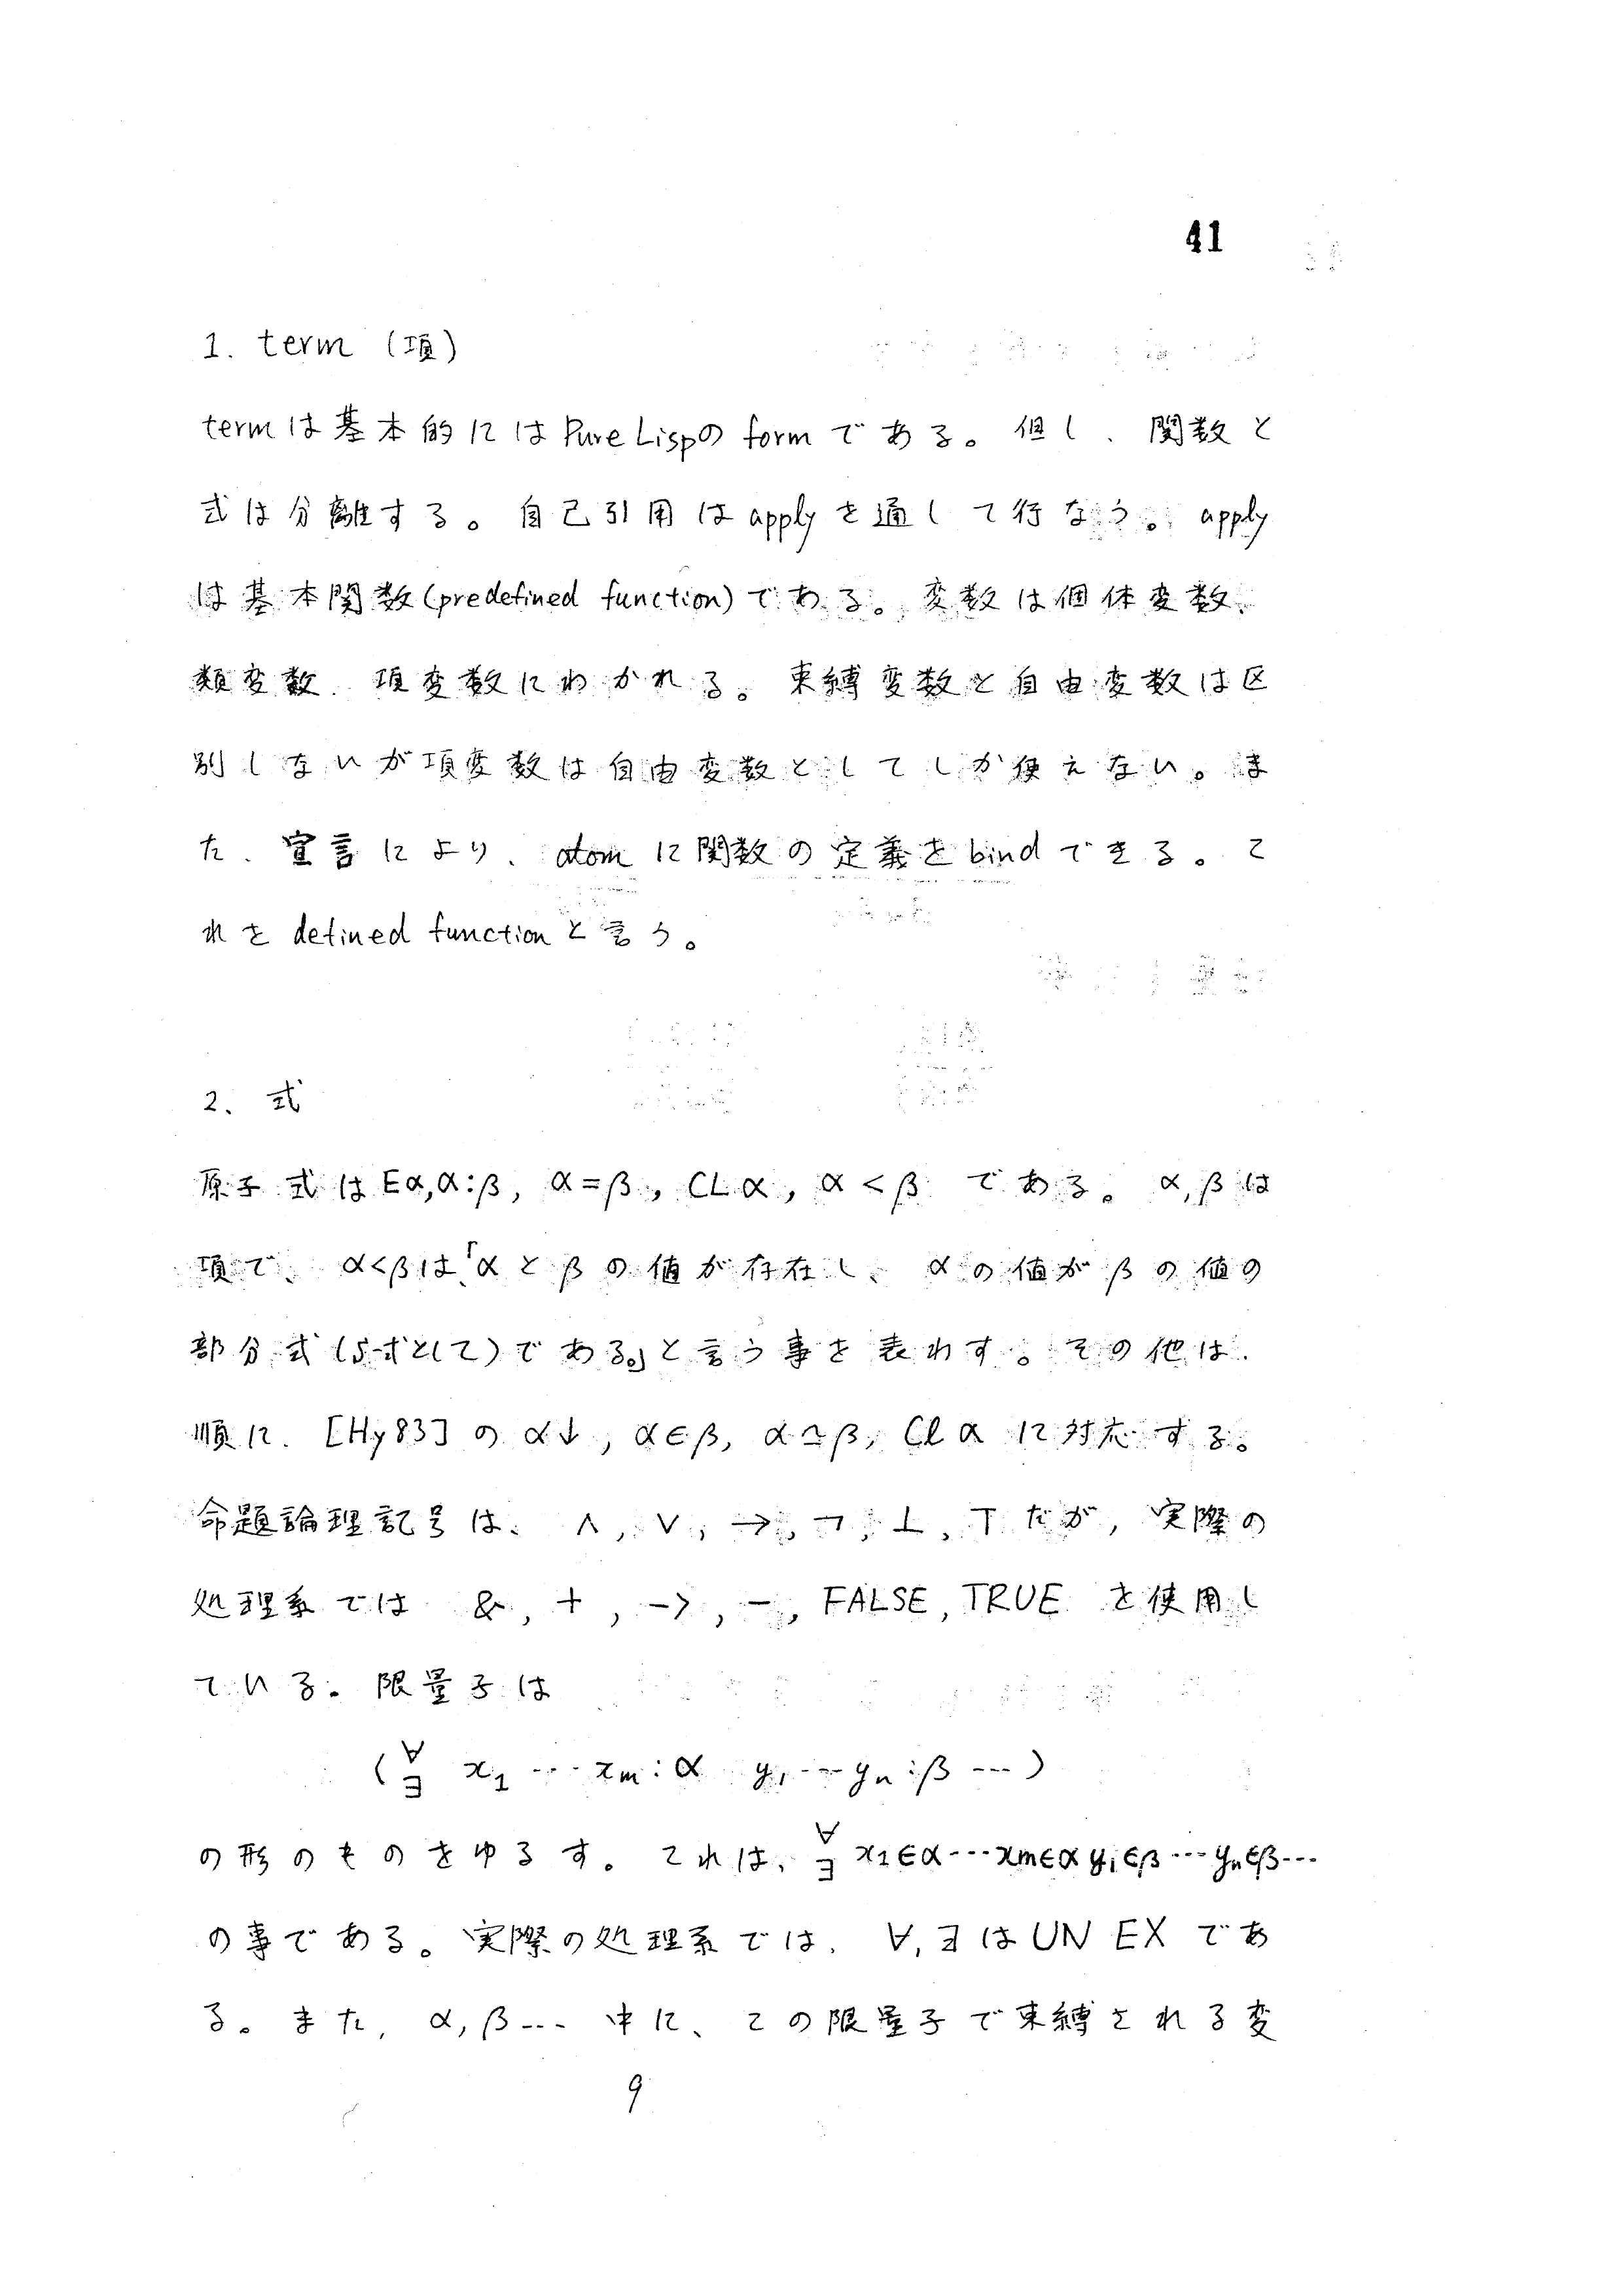 41
1. term (項)
termは基本的にはPure Lispの formである。但し、関数と
式は分離する。自己引用は applyを通して行なう。apply
は基本関数(predefined function)である。変数は個体変数、
類変数、項変数にわかれる。束縛変数と自由変数は区
別しないが項変数は自由変数としてしか使えない。ま
た、宣言により、atomに関数の定義をbindできる。こ
れを defined functionと言う。
2、式
原子式はEα,α:β, α=β, CLα, α<β である。α,βは
項で、α<βは「αとβの値が存在し、αの値がβの値の
部分式(S-式として)である。」と言う事を表わす。その他は、
順に、[Hy83]の α↓, α∈β, α≃β, Cl α に対応する。
命題論理記号は、∧, ∨, →, ¬, ⊥, ⊤だが, 実際の
処理系では &, +, ->, -, FALSE, TRUE を使用し
ている。限量子は
(∀∃ x1 ... xm:α y1 ... yn:β ...)
の形のものをゆるす。これは、∀∃ x1∈α...xm∈α y1∈β...yn∈β...
の事である。実際の処理系では、∀,∃はUN EX であ
る。また, α, β... 中に、この限量子で束縛される変
9